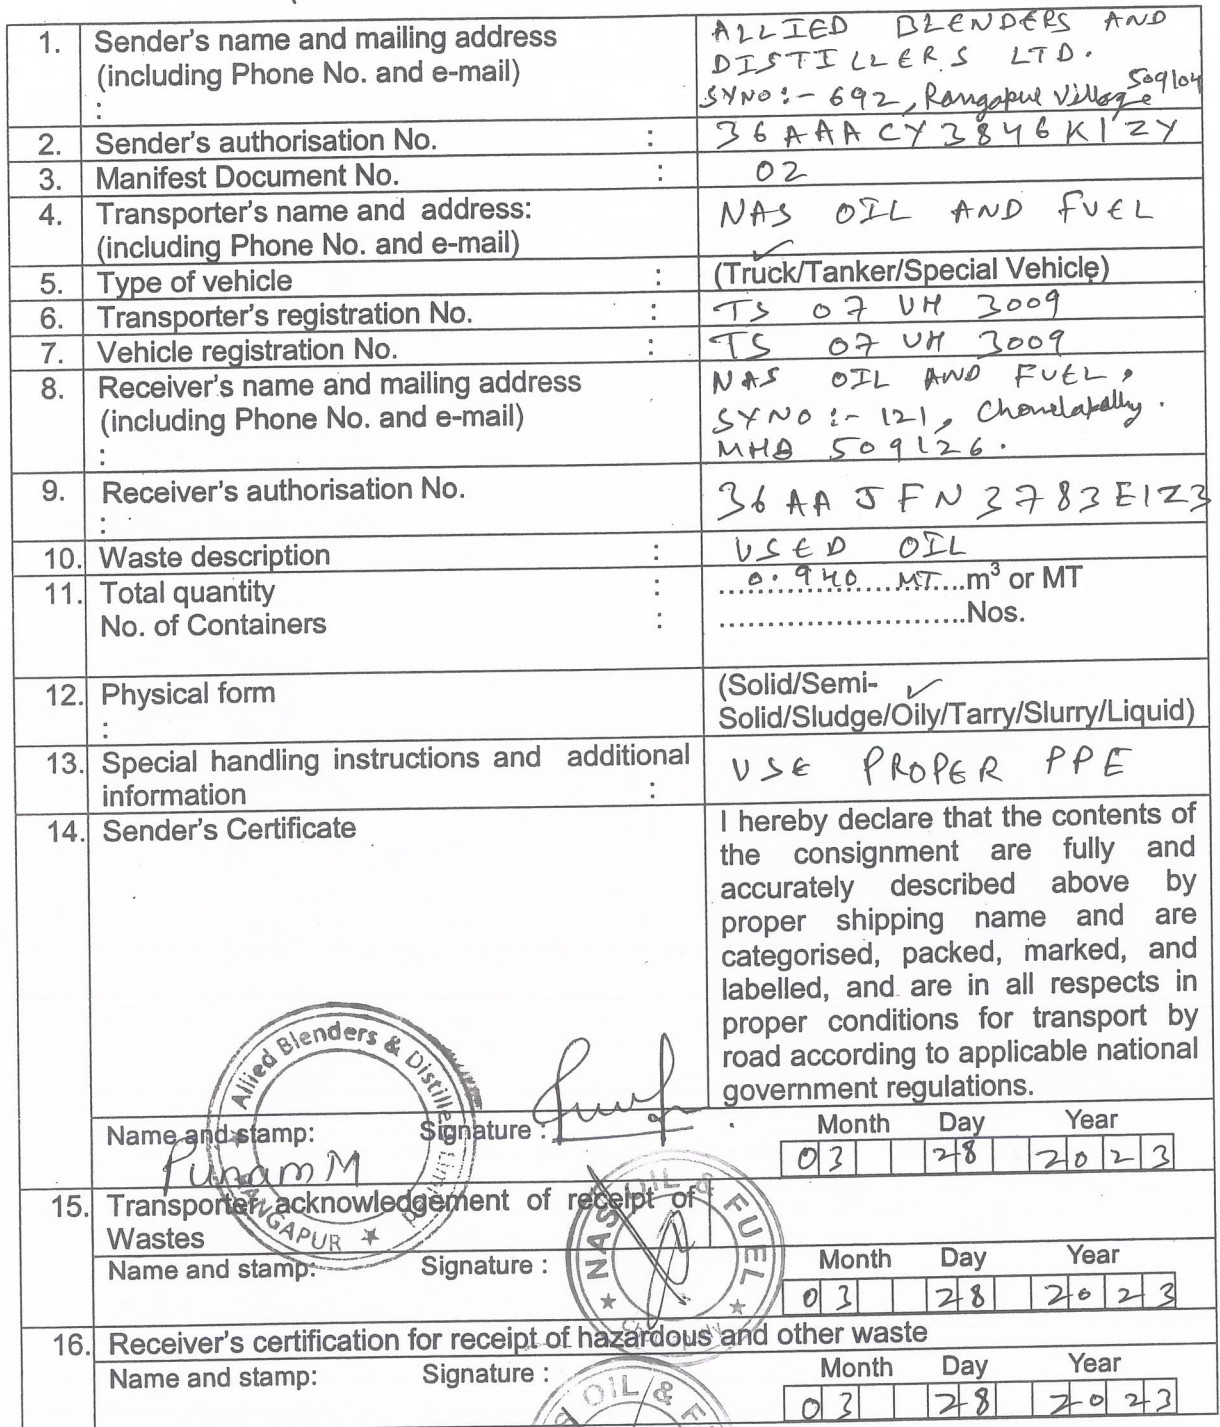 1. Sender's name and mailing address
(including Phone No. and e-mail)
:
ALLIED BLENDERS AND
DISTILLERS LTD.
SYNO:- 692, Rangapur Village 509104
2. Sender's authorisation No. : 36AAACY3846K1ZY
3. Manifest Document No. : 02
4. Transporter's name and address:
(including Phone No. and e-mail)
NAS OIL AND FUEL
5. Type of vehicle : (Truck/Tanker/Special Vehicle)
6. Transporter's registration No. : TS 07 UH 3009
7. Vehicle registration No. : TS 07 UH 3009
8. Receiver's name and mailing address
(including Phone No. and e-mail)
:
NAS OIL AND FUEL,
SYNO:- 121,
509126.
9. Receiver's authorisation No.
:
36AAJFN3783E1Z3
10. Waste description : USED OIL
11. Total quantity : 0.940 MT m³ or MT
No. of Containers : ...........................Nos.
12. Physical form
:
(Solid/Semi-
Solid/Sludge/Oily/Tarry/Slurry/Liquid)
13. Special handling instructions and additional
information :
USE PROPER PPE
14. Sender's Certificate
I hereby declare that the contents of
the consignment are fully and
accurately described above by
proper shipping name and are
categorised, packed, marked, and
labelled, and are in all respects in
proper conditions for transport by
road according to applicable national
government regulations.
Allied Blenders & Distillers Limited
RANGAPUR
Name and stamp: Signature : Month Day Year
Punam M 03 28 2023
15. Transporter acknowledgement of receipt of
Wastes
NAS OIL & FUEL
Name and stamp: Signature : Month Day Year
03 28 2023
16. Receiver's certification for receipt of hazardous and other waste
Name and stamp: Signature : Month Day Year
OIL & F
03 28 2023